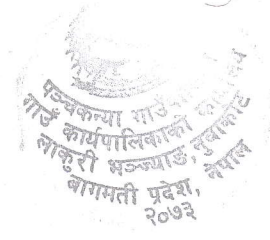 पञ्चकन्या गाउँपालिका
गाउँ कार्यपालिकाको कार्यालय
लाकुरी भञ्ज्याङ, नुवाकोट
बागमती प्रदेश, नेपाल
२०७३